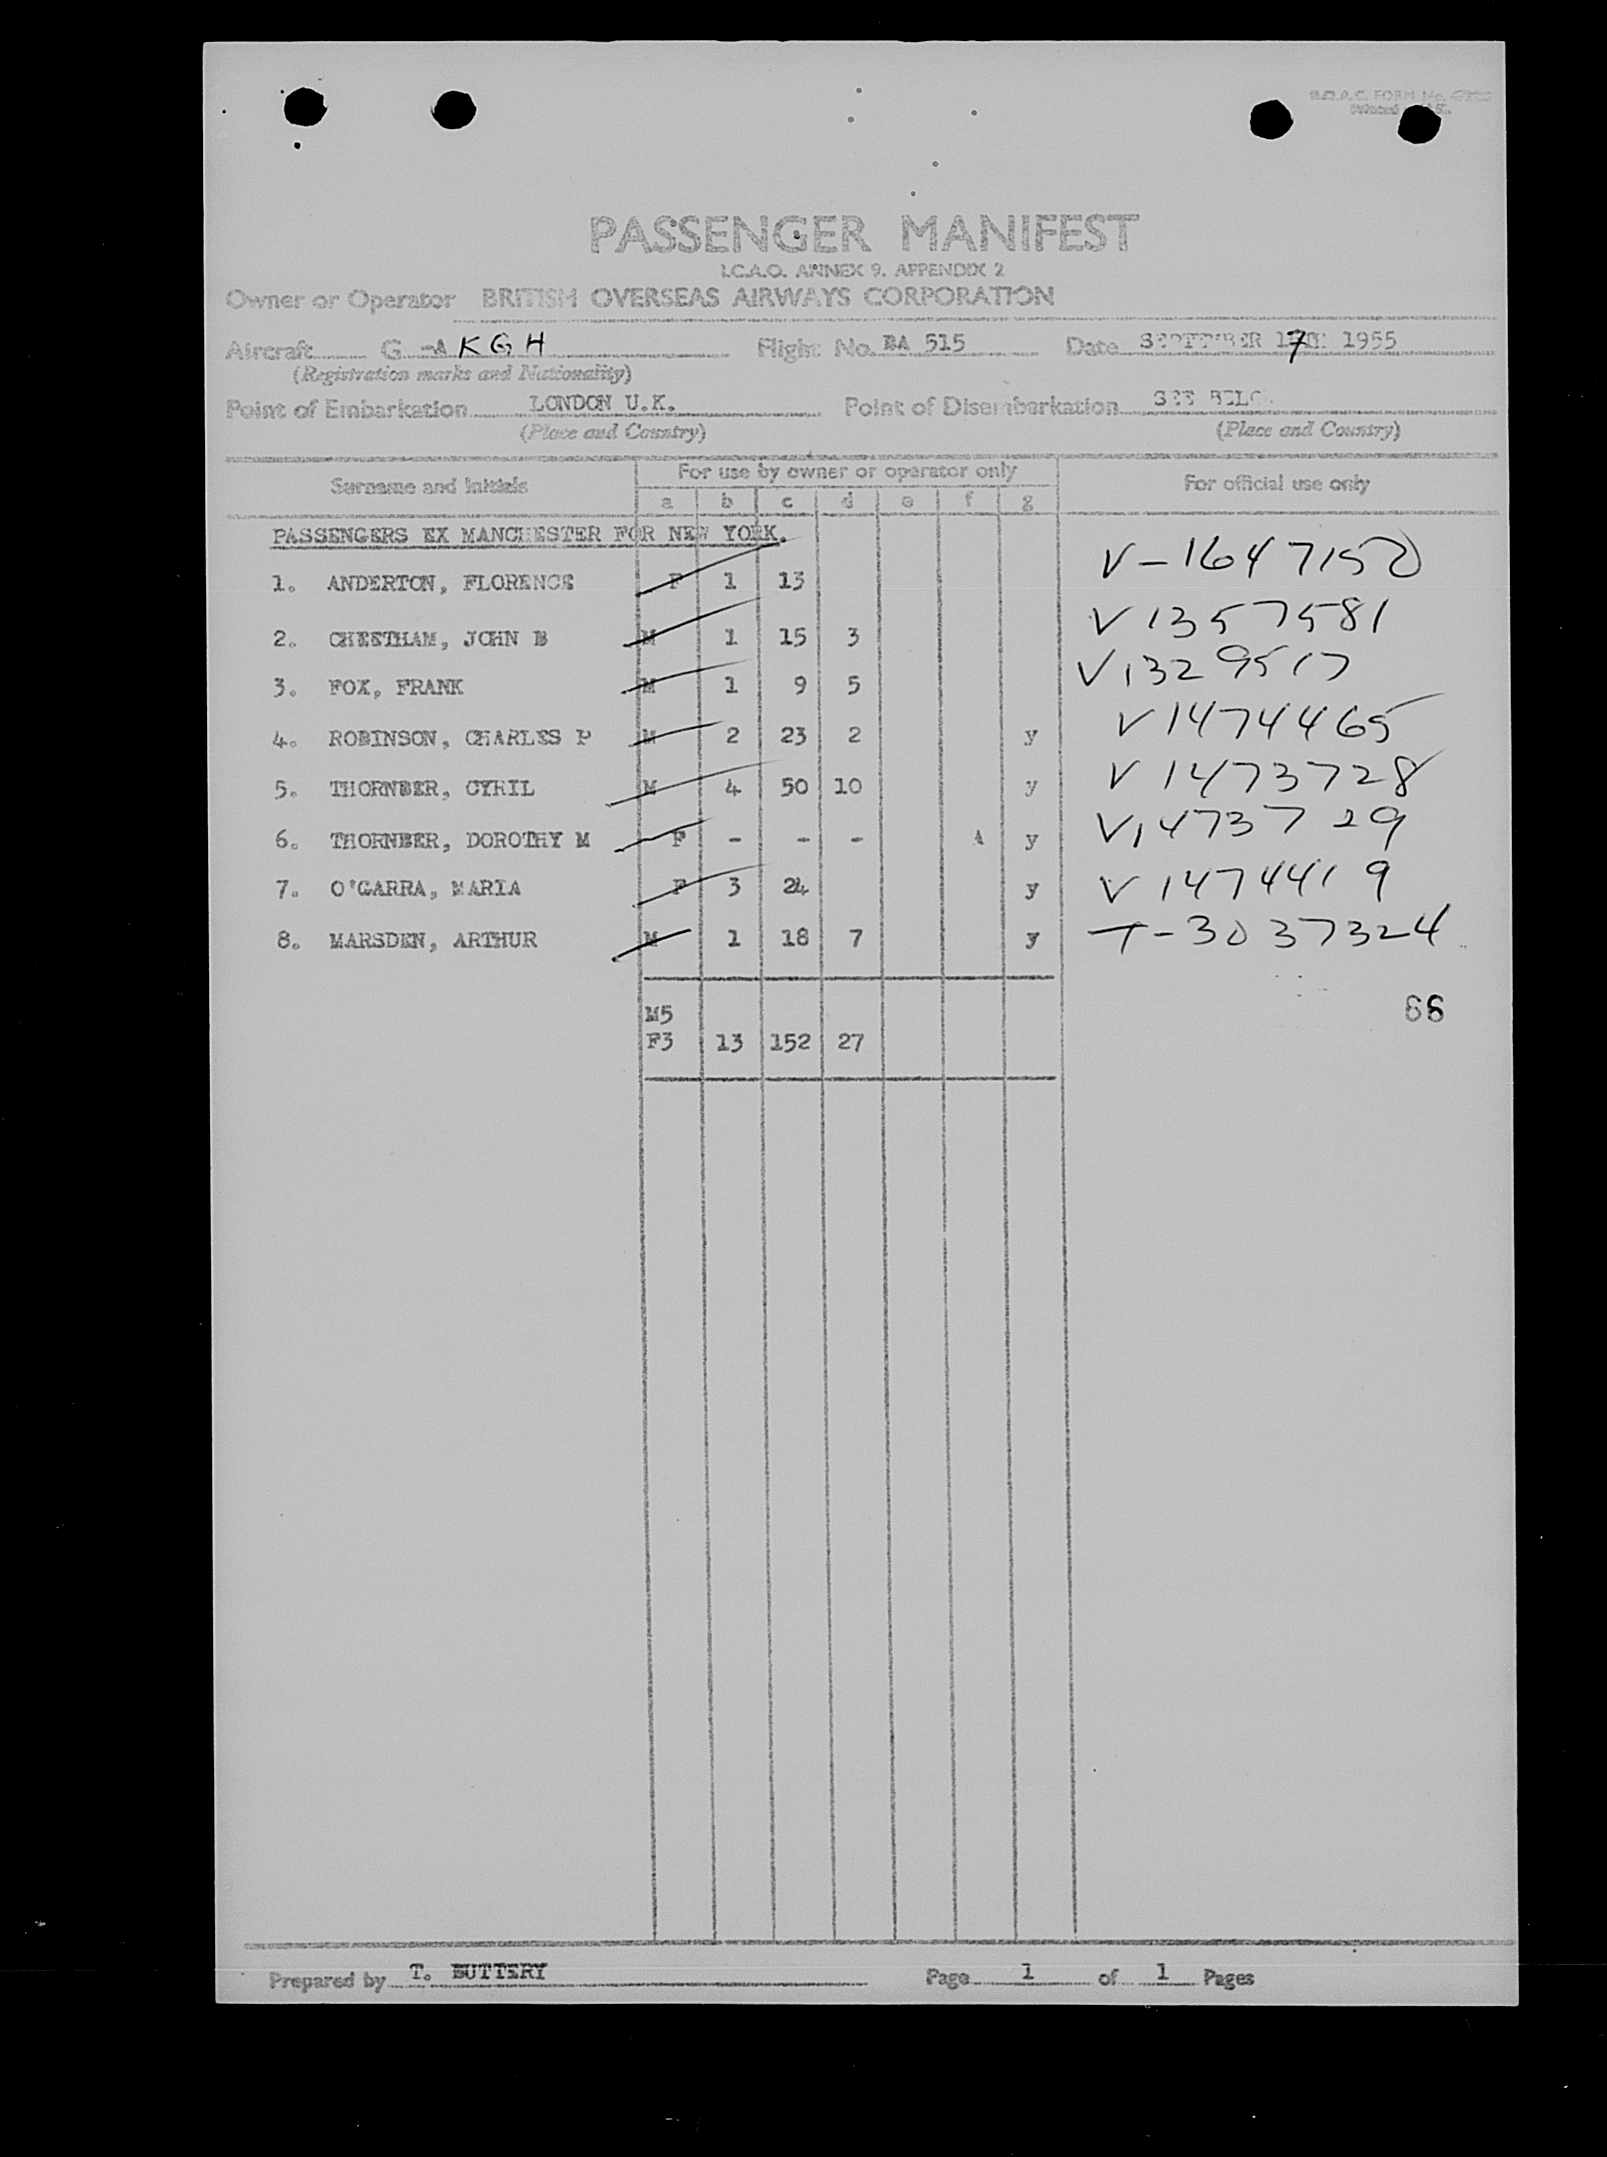 B.O.A.C. FORM No.
PASSENGER MANIFEST
I.C.A.O. ANNEX 9. APPENDIX 2
Owner or Operator BRITISH OVERSEAS AIRWAYS CORPORATION
Aircraft G-AKGH Flight No. BA 515 Date SEPTEMBER 17TH 1955
(Registration marks and Nationality)
Point of Embarkation LONDON U.K. Point of Disembarkation SEE BELOW
(Place and Country) (Place and Country)
Surname and Initials For use by owner or operator only For official use only
a b c d e f g
PASSENGERS EX MANCHESTER FOR NEW YORK.
1. ANDERTON, FLORENCE F 1 13 V-1647150
2. CHEETHAM, JOHN B M 1 15 3 V1357581
3. FOX, FRANK M 1 9 5 V1329517
4. ROBINSON, CHARLES P M 2 23 2 y V1474465
5. THORNBER, CYRIL M 4 50 10 y V1473728
6. THORNBER, DOROTHY M F - - - A y V1473729
7. O'GARRA, MARIA F 3 24 y V1474419
8. MARSDEN, ARTHUR M 1 18 7 y T-3037324
M5
F3 13 152 27
Prepared by T. BUTTERY Page 1 of 1 Pages